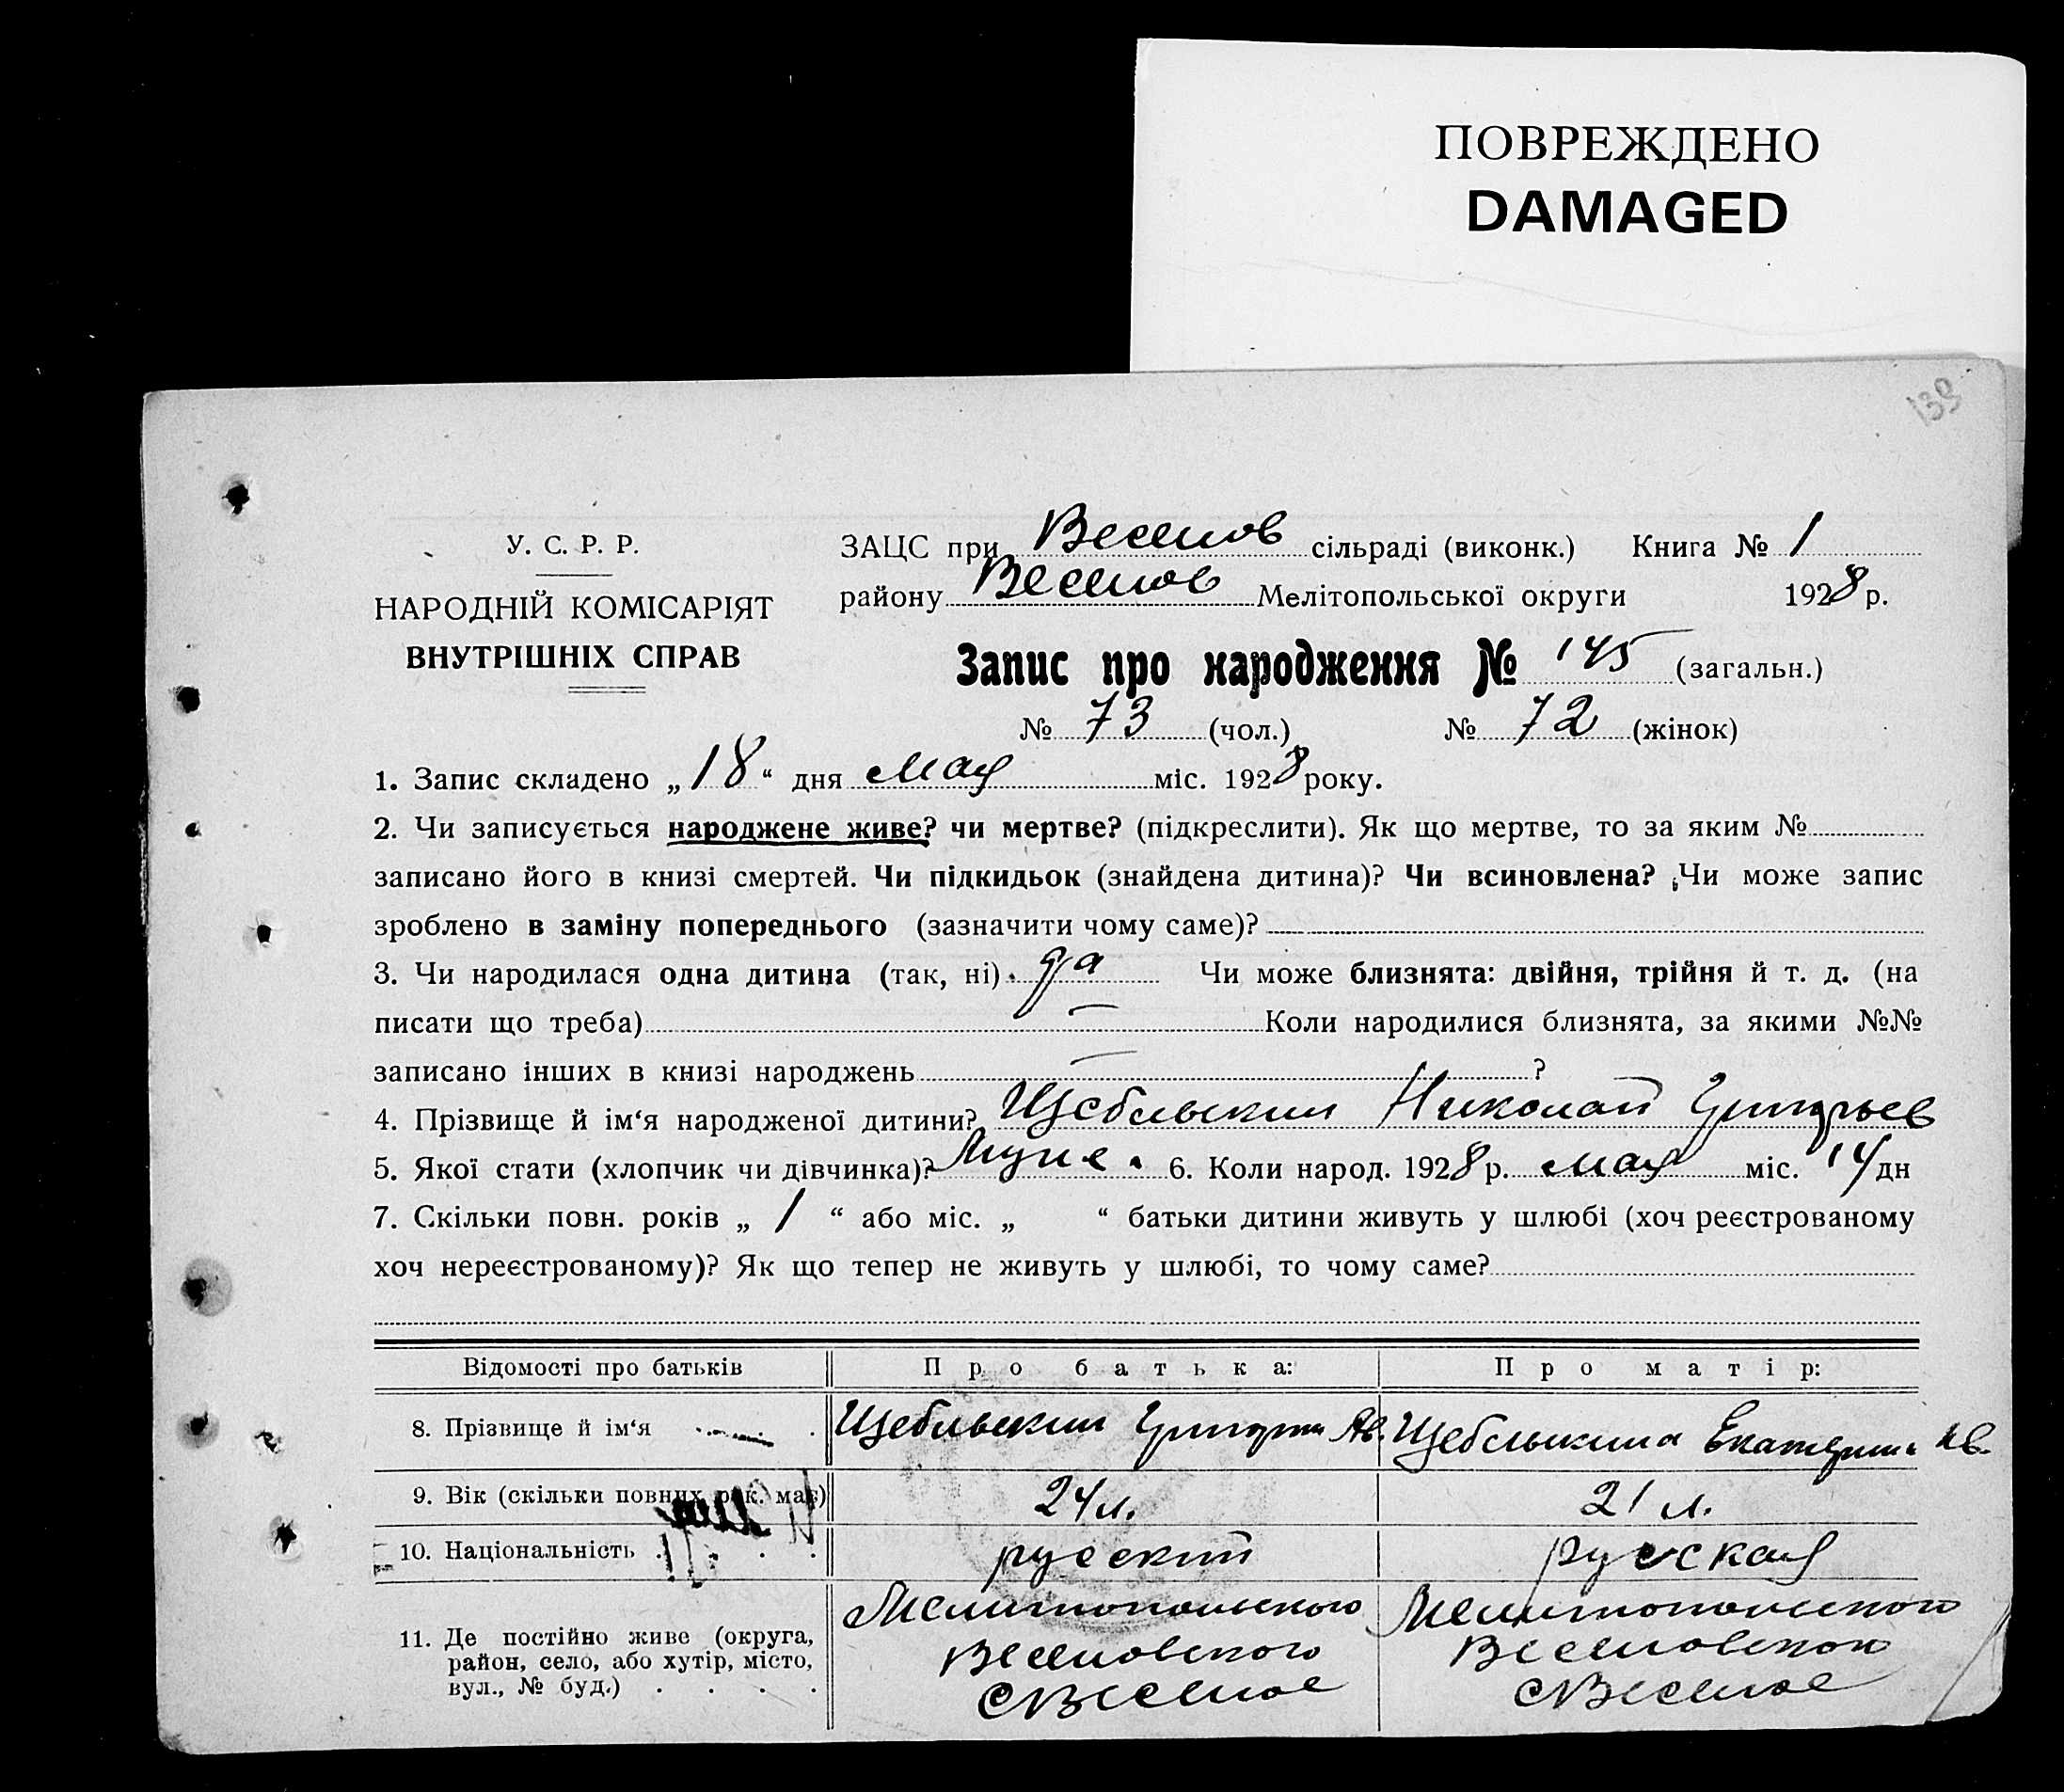 ПОВРЕЖДЕНО
DAMAGED
139
У. С. Р. Р.
НАРОДНІЙ КОМІСАРІЯТ
ВНУТРІШНІХ СПРАВ
ЗАЦС при Веселов сільраді (виконк.) Книга № 1
району Веселов Мелітопольської округи 1928 р.
Запис про народження № 145 (загальн.)
№ 73 (чол.) № 72 (жінок)
1. Запис складено „18“ дня мая міс. 1928 року.
2. Чи записується народжене живе? чи мертве? (підкреслити). Як що мертве, то за яким №
записано його в книзі смертей. Чи підкидьок (знайдена дитина)? Чи всиновлена? Чи може запис
зроблено в заміну попереднього (зазначити чому саме)?
3. Чи народилася одна дитина (так, ні). да Чи може близнята: двійня, трійня й т. д. (на
писати що треба) — Коли народилися близнята, за якими №№
записано інших в книзі народжень — ?
4. Прізвище й ім‘я народженої дитини? Щебльскии Николай Григорьев
5. Якої стати (хлопчик чи дівчинка)? Муже. 6. Коли народ. 1928 р. мая міс. 14 дн
7. Скільки повн. років „ 1 “ або міс. „ “ батьки дитини живуть у шлюбі (хоч реєстрованому
хоч нереєстрованому)? Як що тепер не живуть у шлюбі, то чому саме?
Відомості про батьків Про батька: Про матір:
8. Прізвище й ім‘я . Григори Ав. Екатерина
9. Вік (скільки повних рок. має) 24 л. 21 л.
10. Національність . . . . русский русская
11. Де постійно живе (округа, район, село, або хутір, місто, вул., № буд.) . . . .
Мелитопольского Мелитопольского
Веселовского Веселовского
с Веселое с Веселое